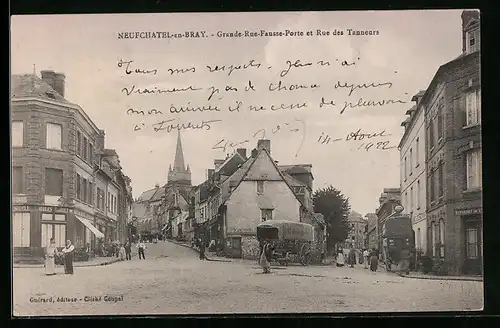 NEUFCHATEL-en-BRAY. - Grande-Rue-Fausse-Porte et Rue des Tanneurs
Tous mes respects. Je n'ai
vraiment pas de chance depuis
mon arrivée il ne cesse de pleuvoir
à
14 - Août
1922
Guérard, éditeur - Cliché Coupel